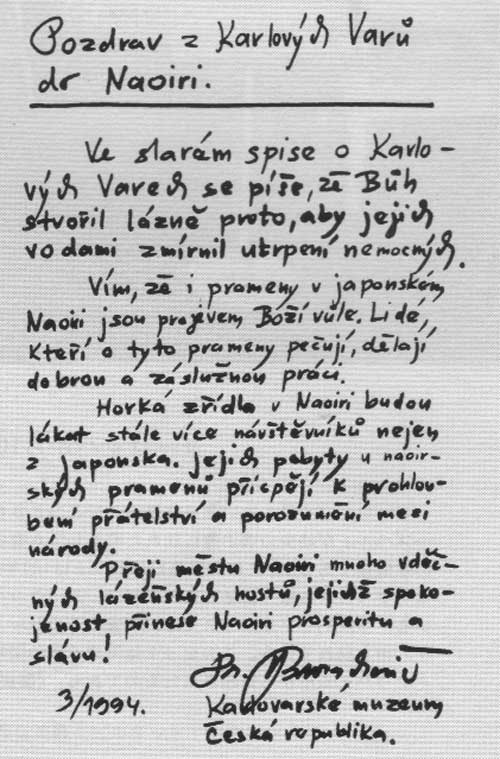 Pozdrav z Karlových Varů
do Naoiri.
Ve starém spise o Karlo-
vých Varech se píše, že Bůh
stvořil lázně proto, aby jejich
vodami zmírnil utrpení nemocných.
Vím, že i prameny v japonském
Naoiri jsou projevem Boží vůle. Lidé,
kteří o tyto prameny pečují, dělají
dobrou a záslužnou práci.
Horká zřídla v Naoiri budou
lákat stále více návštěvníků nejen
z Japonska. Jejich pobyty u naoir-
ských pramenů přispějí k prohlou-
bení přátelství a porozumění mezi
národy.
Přeji městu Naoiri mnoho vděč-
ných lázeňských hostů, jejichž spoko-
jenost přinese Naoiri prosperitu a
slávu!
3/1994.
Karlovarské muzeum
Česká republika.